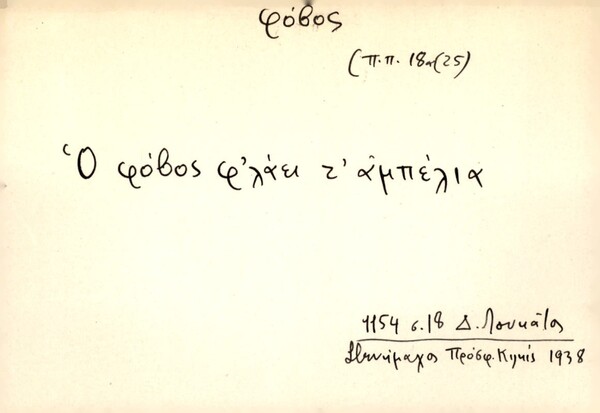 φόβος
(π.π. 18α(25)
Ὁ φόβος φ'λάει τ' ἀμπέλια
1154 σ.18 Δ. Λουκᾶτος
Στενήμαχος Πρόσφ. Κιλκίς 1938